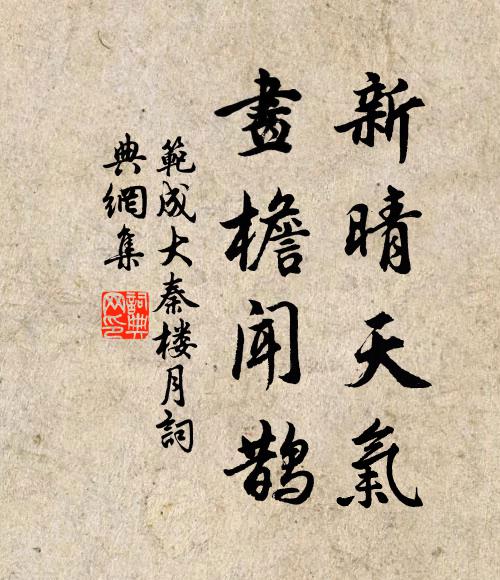 新晴天氣
畫檐聞鵲
範成大秦楼月詞
典網集
詞典网印